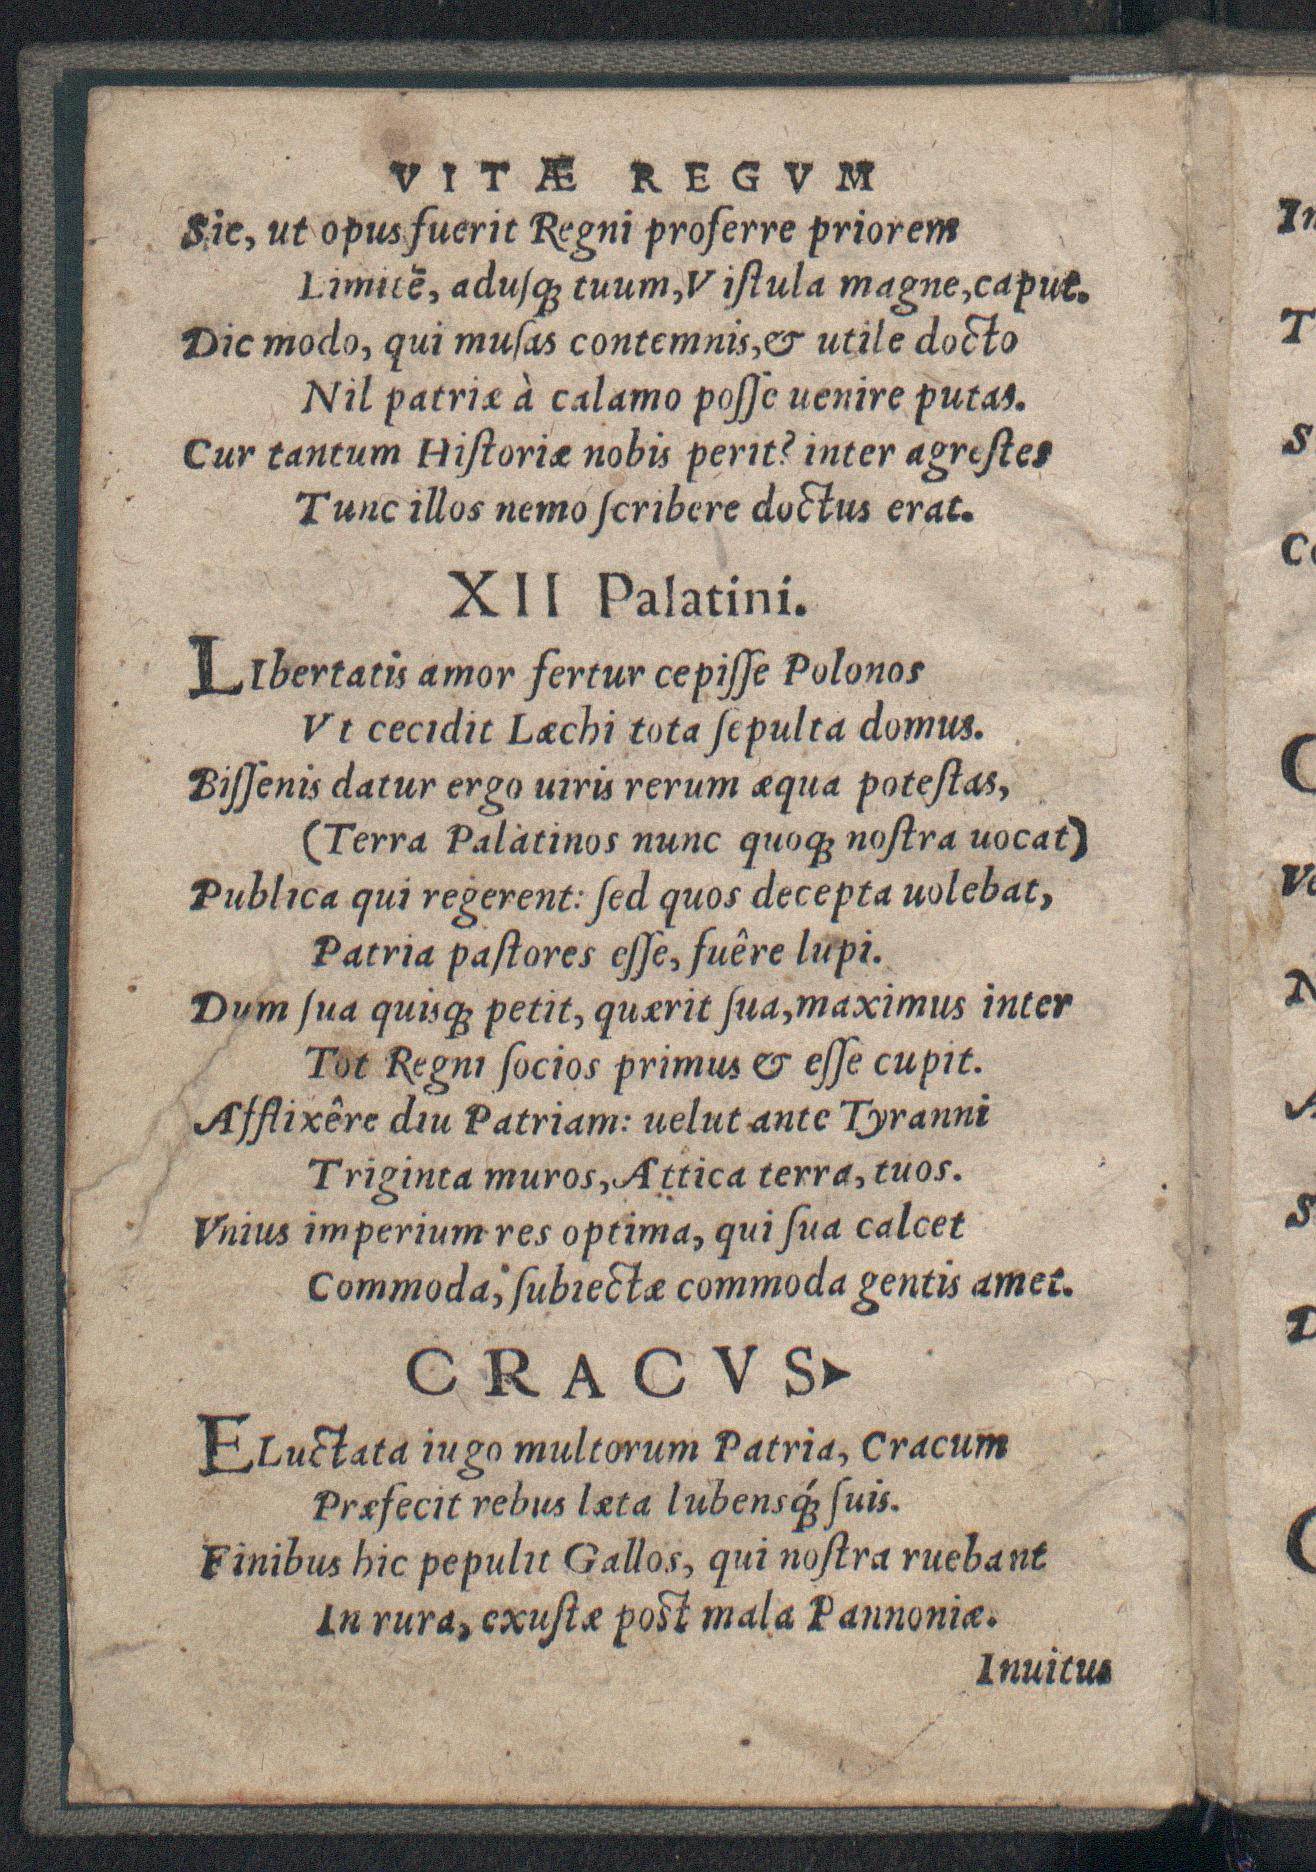 VITÆ REGVM
Sic, ut opus fuerit Regni proferre priorem
Limitē, aduſqꝫ tuum, Viſtula magne, caput.
Dic modo, qui muſas contemnis, & utile docto
Nil patriæ à calamo poſſe uenire putas.
Cur tantum Hiſtoriæ nobis perit? inter agreſtes
Tunc illos nemo ſcribere doctus erat.
XII Palatini.
LIbertatis amor fertur cepiſſe Polonos
Vt cecidit Læchi tota ſepulta domus.
Biſſenis datur ergo uiris rerum æqua poteſtas,
(Terra Palatinos nunc quoqꝫ noſtra uocat)
Publica qui regerent: ſed quos decepta uolebat,
Patria paſtores eſſe, fuêre lupi.
Dum ſua quisqꝫ petit, quærit ſua, maximus inter
Tot Regni ſocios primus & eſſe cupit.
Afflixêre diu Patriam: uelut ante Tyranni
Triginta muros, Attica terra, tuos.
Vnius imperium res optima, qui ſua calcet
Commoda, ſubiectæ commoda gentis amet.
CRACVS
ELuctata iugo multorum Patria, Cracum
Præfecit rebus læta lubensqꝫ́ ſuis.
Finibus hic pepulit Gallos, qui noſtra ruebant
In rura, exuſtæ poſt mala Pannoniæ.
Inuitus